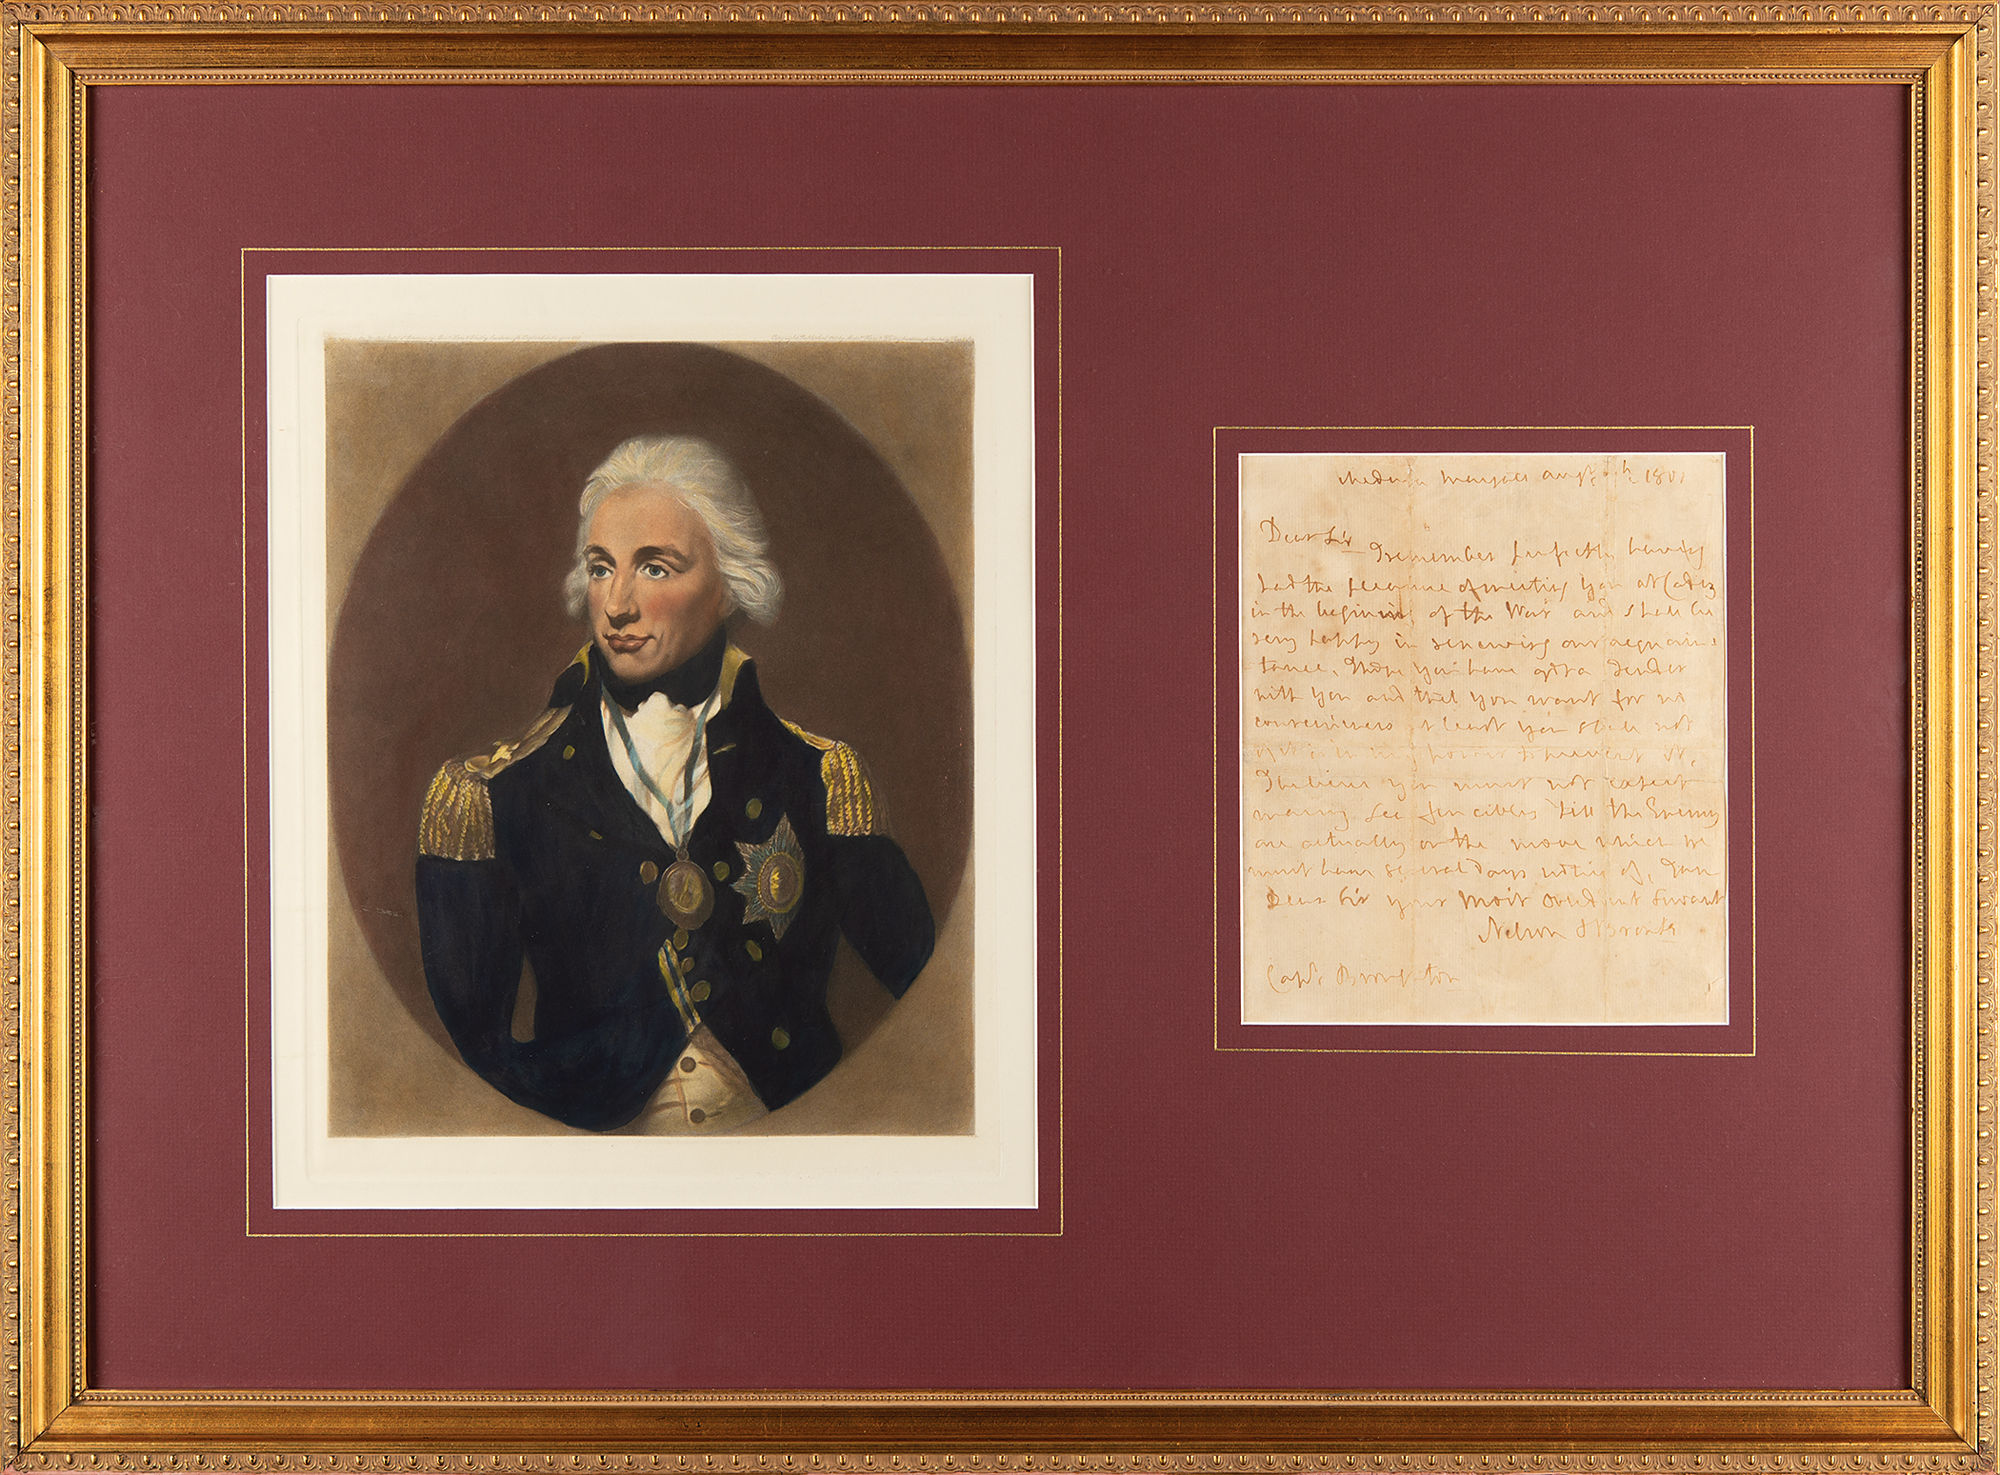 Medusa Margate Augt. 1801
Dear Sir I remember perfectly having
had the pleasure of meeting you at Cadiz
in the beginning of the War and shall be
very happy in renewing our acquain-
tance, I hope you have got a Tender
with you and that you want for no
conveniences at least you shall not
in my power to prevent it,
I believe you must not expect
many Sea fencibles till the Enemy
are actually on the move which we
must have several Days notice of, I am
Dear Sir your most obedient Servant
Nelson & Bronte
Capt. Broughton